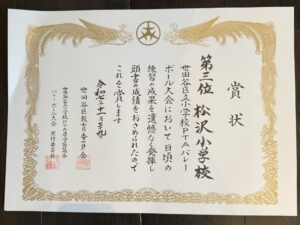 賞状
第三位 松沢小学校
世田谷区立小学校PTAバレー
ボール大会において日頃の
練習の成果を遺憾なく発揮し
頭書の成績をおさめられたので
これを賞します
令和七年十一月九日
世田谷区教育委員会
世田谷区立小学校PTA連合協議会
バレーボール大会 実行委員会